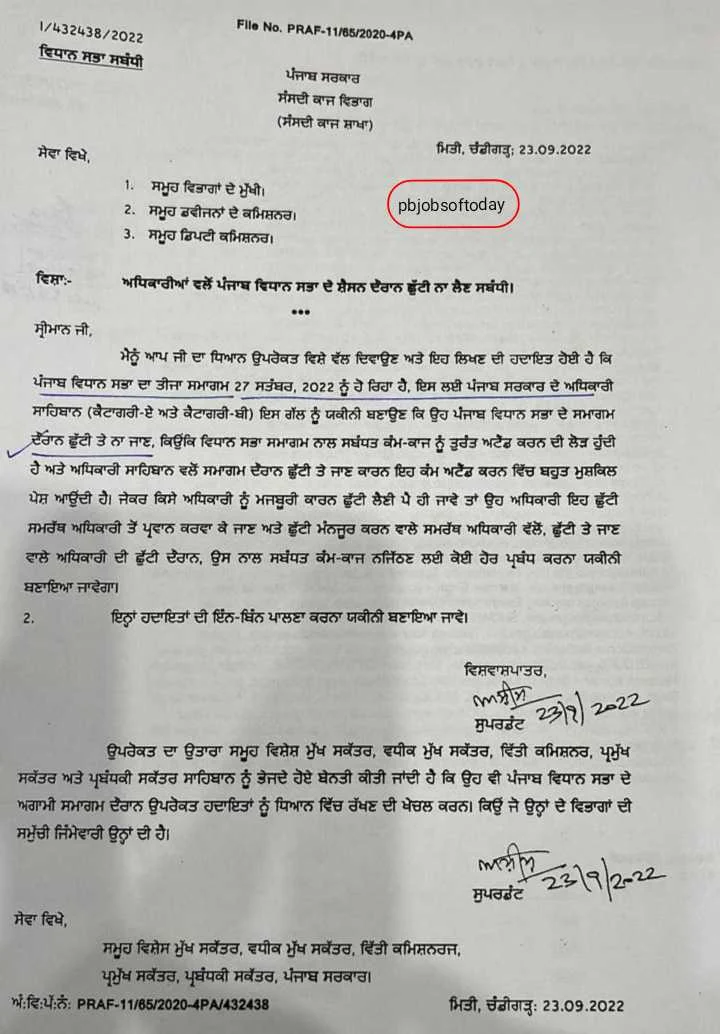 I/432438/2022
File No. PRAF-11/65/2020-4PA
ਵਿਧਾਨ ਸਭਾ ਸਬੰਧੀ
ਪੰਜਾਬ ਸਰਕਾਰ
ਸੰਸਦੀ ਕਾਜ ਵਿਭਾਗ
(ਸੰਸਦੀ ਕਾਜ ਸ਼ਾਖਾ)
ਮਿਤੀ, ਚੰਡੀਗੜ੍ਹ; 23.09.2022
ਸੇਵਾ ਵਿਖੇ,
1. ਸਮੂਹ ਵਿਭਾਗਾਂ ਦੇ ਮੁੱਖੀ।
2. ਸਮੂਹ ਡਵੀਜਨਾਂ ਦੇ ਕਮਿਸ਼ਨਰ।
3. ਸਮੂਹ ਡਿਪਟੀ ਕਮਿਸ਼ਨਰ।
pbjobsoftoday
ਵਿਸ਼ਾ:- ਅਧਿਕਾਰੀਆਂ ਵਲੋਂ ਪੰਜਾਬ ਵਿਧਾਨ ਸਭਾ ਦੇ ਸ਼ੈਸਨ ਦੌਰਾਨ ਛੁੱਟੀ ਨਾ ਲੈਣ ਸਬੰਧੀ।
•••
ਸ੍ਰੀਮਾਨ ਜੀ,
ਮੈਨੂੰ ਆਪ ਜੀ ਦਾ ਧਿਆਨ ਉਪਰੋਕਤ ਵਿਸ਼ੇ ਵੱਲ ਦਿਵਾਉਣ ਅਤੇ ਇਹ ਲਿਖਣ ਦੀ ਹਦਾਇਤ ਹੋਈ ਹੈ ਕਿ
ਪੰਜਾਬ ਵਿਧਾਨ ਸਭਾ ਦਾ ਤੀਜਾ ਸਮਾਗਮ 27 ਸਤੰਬਰ, 2022 ਨੂੰ ਹੋ ਰਿਹਾ ਹੈ, ਇਸ ਲਈ ਪੰਜਾਬ ਸਰਕਾਰ ਦੇ ਅਧਿਕਾਰੀ
ਸਾਹਿਬਾਨ (ਕੈਟਾਗਰੀ-ਏ ਅਤੇ ਕੈਟਾਗਰੀ-ਬੀ) ਇਸ ਗੱਲ ਨੂੰ ਯਕੀਨੀ ਬਣਾਉਣ ਕਿ ਉਹ ਪੰਜਾਬ ਵਿਧਾਨ ਸਭਾ ਦੇ ਸਮਾਗਮ
ਦੌਰਾਨ ਛੁੱਟੀ ਤੇ ਨਾ ਜਾਣ, ਕਿਉਂਕਿ ਵਿਧਾਨ ਸਭਾ ਸਮਾਗਮ ਨਾਲ ਸਬੰਧਤ ਕੰਮ-ਕਾਜ ਨੂੰ ਤੁਰੰਤ ਅਟੈਂਡ ਕਰਨ ਦੀ ਲੋੜ ਹੁੰਦੀ
ਹੈ ਅਤੇ ਅਧਿਕਾਰੀ ਸਾਹਿਬਾਨ ਵਲੋਂ ਸਮਾਗਮ ਦੌਰਾਨ ਛੁੱਟੀ ਤੇ ਜਾਣ ਕਾਰਨ ਇਹ ਕੰਮ ਅਟੈਂਡ ਕਰਨ ਵਿੱਚ ਬਹੁਤ ਮੁਸ਼ਕਿਲ
ਪੇਸ਼ ਆਉਂਦੀ ਹੈ। ਜੇਕਰ ਕਿਸੇ ਅਧਿਕਾਰੀ ਨੂੰ ਮਜਬੂਰੀ ਕਾਰਨ ਛੁੱਟੀ ਲੈਣੀ ਪੈ ਹੀ ਜਾਵੇ ਤਾਂ ਉਹ ਅਧਿਕਾਰੀ ਇਹ ਛੁੱਟੀ
ਸਮਰੱਥ ਅਧਿਕਾਰੀ ਤੋਂ ਪ੍ਰਵਾਨ ਕਰਵਾ ਕੇ ਜਾਣ ਅਤੇ ਛੁੱਟੀ ਮੰਨਜੂਰ ਕਰਨ ਵਾਲੇ ਸਮਰੱਥ ਅਧਿਕਾਰੀ ਵੱਲੋਂ, ਛੁੱਟੀ ਤੇ ਜਾਣ
ਵਾਲੇ ਅਧਿਕਾਰੀ ਦੀ ਛੁੱਟੀ ਦੌਰਾਨ, ਉਸ ਨਾਲ ਸਬੰਧਤ ਕੰਮ-ਕਾਜ ਨਜਿੱਠਣ ਲਈ ਕੋਈ ਹੋਰ ਪ੍ਰਬੰਧ ਕਰਨਾ ਯਕੀਨੀ
ਬਣਾਇਆ ਜਾਵੇਗਾ।
2. ਇਨ੍ਹਾਂ ਹਦਾਇਤਾਂ ਦੀ ਇੰਨ-ਬਿੰਨ ਪਾਲਣਾ ਕਰਨਾ ਯਕੀਨੀ ਬਣਾਇਆ ਜਾਵੇ।
ਵਿਸ਼ਵਾਸ਼ਪਾਤਰ,
23/9/2022
ਸੁਪਰਡੰਟ
ਉਪਰੋਕਤ ਦਾ ਉਤਾਰਾ ਸਮੂਹ ਵਿਸ਼ੇਸ਼ ਮੁੱਖ ਸਕੱਤਰ, ਵਧੀਕ ਮੁੱਖ ਸਕੱਤਰ, ਵਿੱਤੀ ਕਮਿਸ਼ਨਰ, ਪ੍ਰਮੁੱਖ
ਸਕੱਤਰ ਅਤੇ ਪ੍ਰਬੰਧਕੀ ਸਕੱਤਰ ਸਾਹਿਬਾਨ ਨੂੰ ਭੇਜਦੇ ਹੋਏ ਬੇਨਤੀ ਕੀਤੀ ਜਾਂਦੀ ਹੈ ਕਿ ਉਹ ਵੀ ਪੰਜਾਬ ਵਿਧਾਨ ਸਭਾ ਦੇ
ਅਗਾਮੀ ਸਮਾਗਮ ਦੌਰਾਨ ਉਪਰੋਕਤ ਹਦਾਇਤਾਂ ਨੂੰ ਧਿਆਨ ਵਿੱਚ ਰੱਖਣ ਦੀ ਖੇਚਲ ਕਰਨ। ਕਿਉਂ ਜੋ ਉਨ੍ਹਾਂ ਦੇ ਵਿਭਾਗਾਂ ਦੀ
ਸਮੁੱਚੀ ਜਿੰਮੇਵਾਰੀ ਉਨ੍ਹਾਂ ਦੀ ਹੈ।
23/9/2022
ਸੁਪਰਡੰਟ
ਸੇਵਾ ਵਿਖੇ,
ਸਮੂਹ ਵਿਸ਼ੇਸ ਮੁੱਖ ਸਕੱਤਰ, ਵਧੀਕ ਮੁੱਖ ਸਕੱਤਰ, ਵਿੱਤੀ ਕਮਿਸ਼ਨਰਜ,
ਪ੍ਰਮੁੱਖ ਸਕੱਤਰ, ਪ੍ਰਬੰਧਕੀ ਸਕੱਤਰ, ਪੰਜਾਬ ਸਰਕਾਰ।
ਅੰ:ਵਿ:ਪੱ:ਨੰ: PRAF-11/65/2020-4PA/432438
ਮਿਤੀ, ਚੰਡੀਗੜ੍ਹ: 23.09.2022